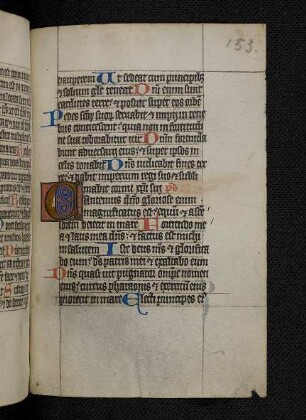 153.
pauperem Ut sedeat cum principib;
⁊ solium gl̄e teneat Dn̄i enim sunt
cardines terre: ⁊ posuit super eos orbē
Pedes sc̄oꝝ suoꝝ servabit ⁊ impii in tene
bris conticescent: quia non in fortitudi
ne sua roborabitur vir Dn̄m formida
bunt adversarii eius: ⁊ super ipsos in
celis tonabit Dn̄s iudicabit fines ter
re: ⁊ dabit imperium regi suo ⁊ subli
mabit cornu xp̄i sui ps̄
Cantemus dn̄o gloriose enim
magnificatus est: equum ⁊ asce
sorem deiecit in mare Fortitudo me
a ⁊ laus mea dn̄s: ⁊ factus est michi
in salutem Iste deus m̄s ⁊ glorifica
bo eum: ds̄ patris mei ⁊ exaltabo eum
Dn̄s quasi vir pugnator omp̄s nomen
eius: currus pharaonis ⁊ exercitū eius
proiecit in mare Electi principes ei⁹